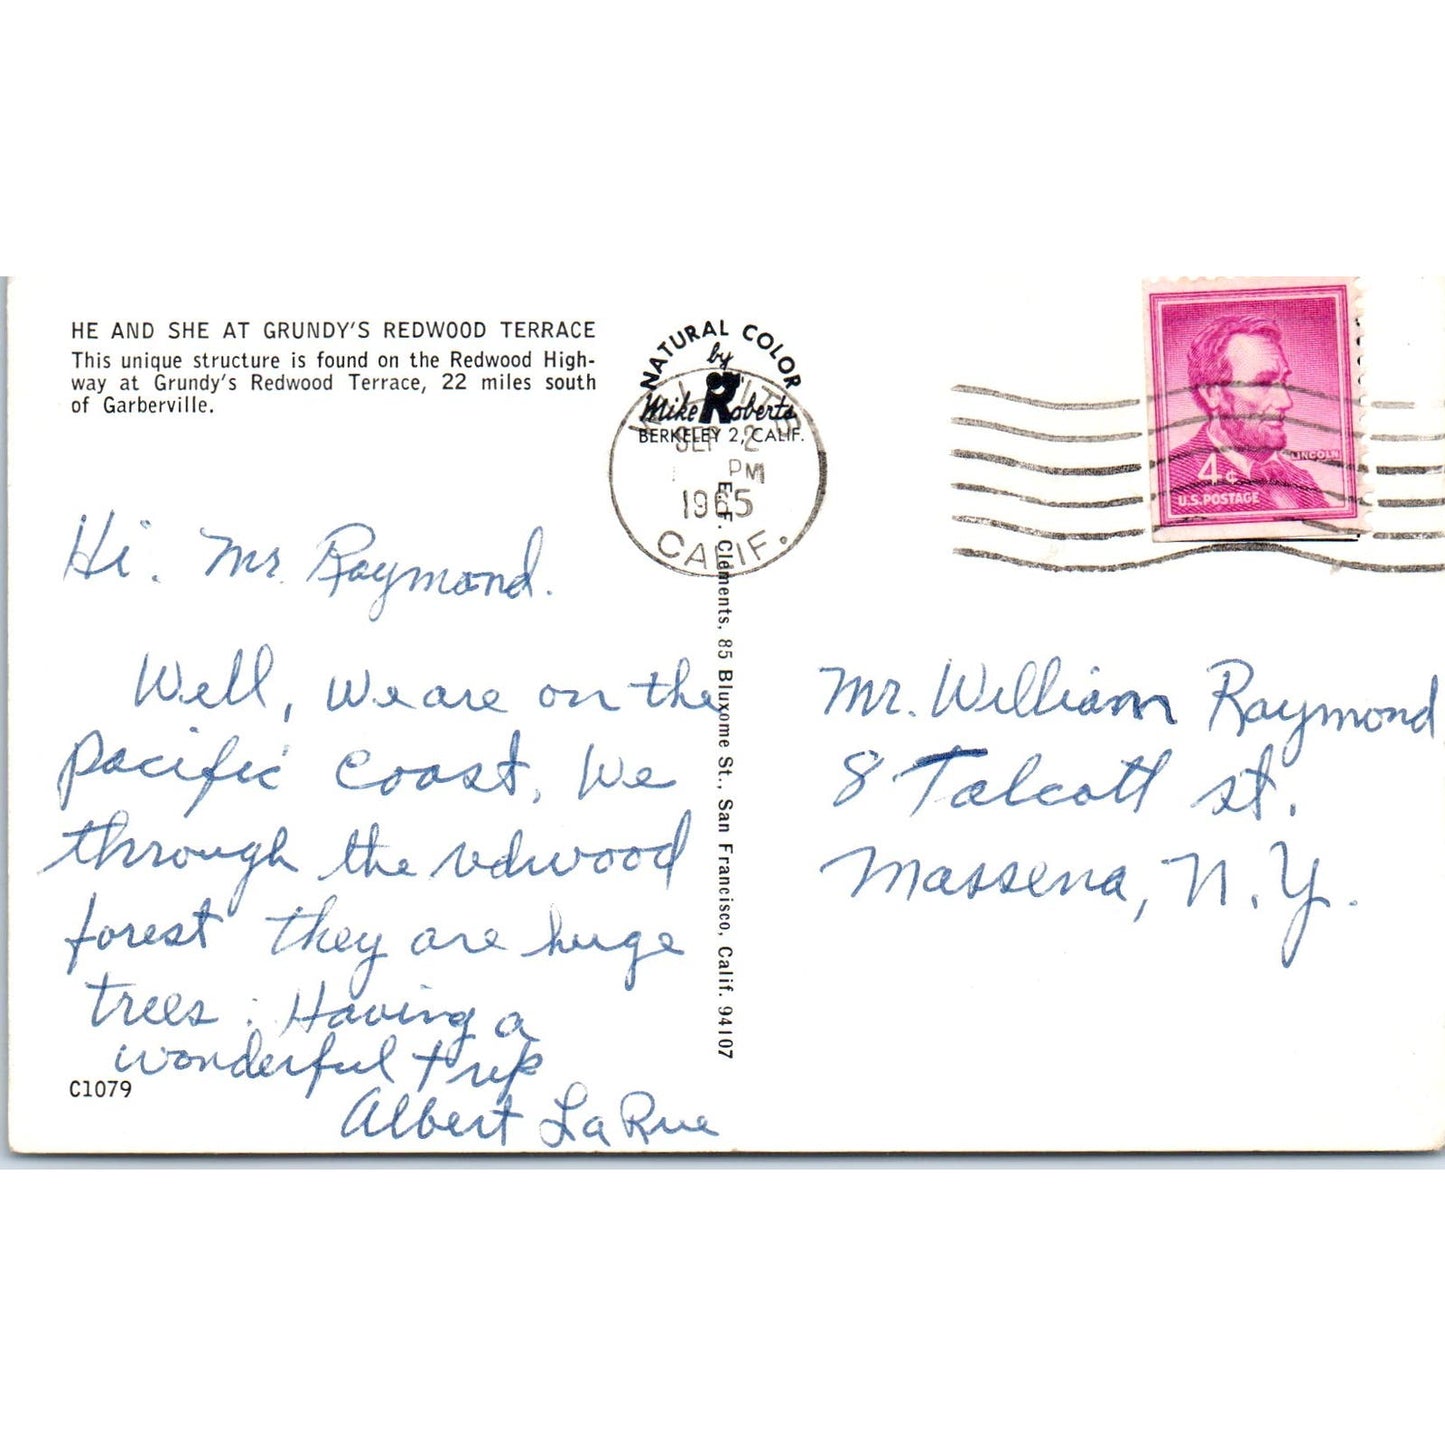 HE AND SHE AT GRUNDY'S REDWOOD TERRACE
This unique structure is found on the Redwood High-
way at Grundy's Redwood Terrace, 22 miles south
of Garberville.
NATURAL COLOR
by
Mike Roberts
BERKELEY 2, CALIF.
SEP 2
PM
1965
CALIF.
LINCOLN
4¢
U.S. POSTAGE
E. F. Clements, 85 Bluxome St., San Francisco, Calif. 94107
Hi. Mr. Raymond.
Well, we are on the
Pacific Coast, We
through the redwood
forest they are huge
trees. Having a
wonderful trip
Albert LaRue
C1079
Mr. William Raymond
8 Talcott St.
Massena, N.Y.